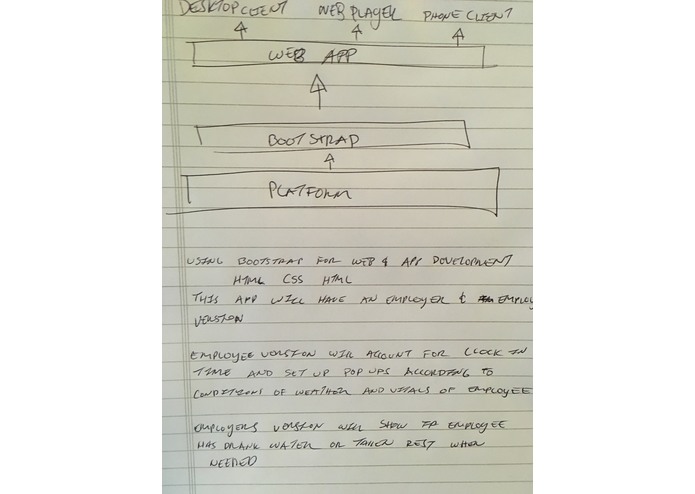 DESKTOP CLIENT WEB PLAYER PHONE CLIENT
WEB APP
BOOTSTRAP
PLATFORM
USING BOOTSTRAP FOR WEB & APP DEVELOPMENT
HTML CSS HTML
THIS APP WILL HAVE AN EMPLOYER & EMPLOY
VERSION
EMPLOYEE VERSION WILL ACCOUNT FOR CLOCK IN
TIME AND SET UP POP UPS ACCORDING TO
CONDITIONS OF WEATHER AND VITALS OF EMPLOYEE
EMPLOYERS VERSION WILL SHOW IF EMPLOYEE
HAS DRANK WATER OR TAKEN REST WHEN
NEEDED